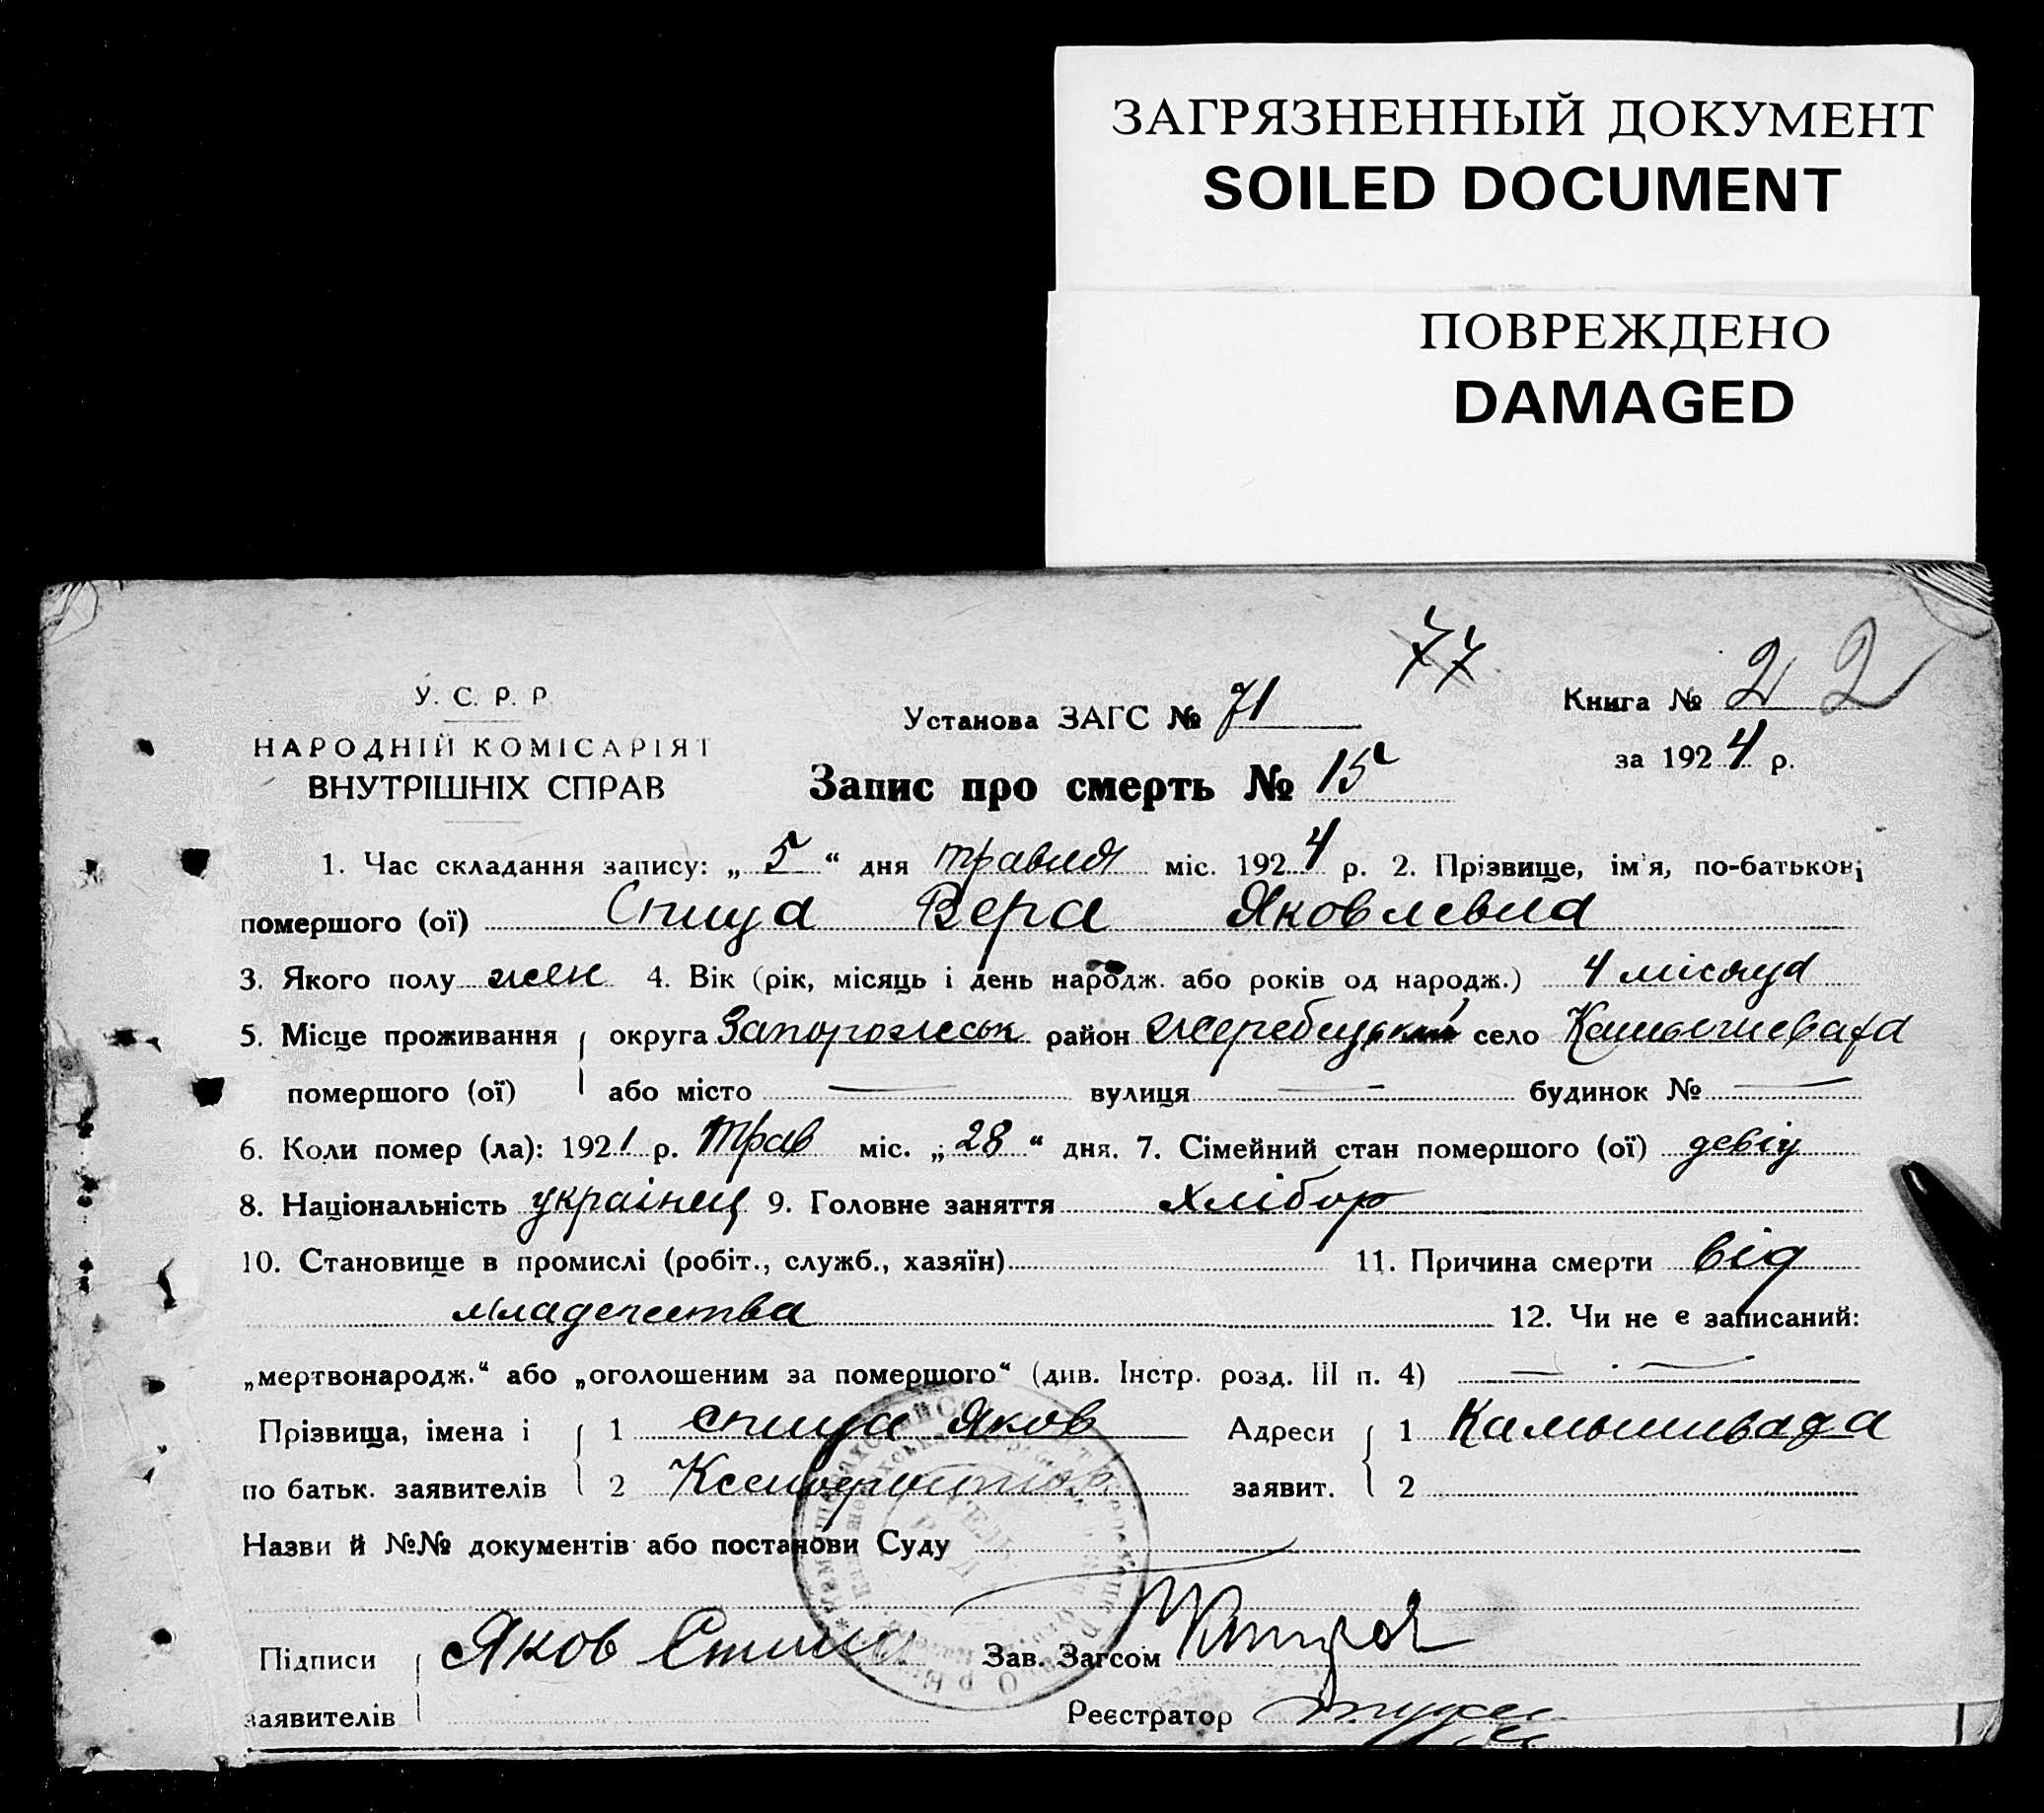 ЗАГРЯЗНЕННЫЙ ДОКУМЕНТ
SOILED DOCUMENT
ПОВРЕЖДЕНО
DAMAGED
77
У. С. Р. Р.
НАРОДНІЙ КОМІСАРІЯТ
ВНУТРІШНІХ СПРАВ
Установа ЗАГС № 71
Запис про смерть № 15
Книга № 2 2
за 1924 р.
1. Час складання запису: „ 5 “ дня травля міс. 1924 р. 2. Прізвище, ім'я, по-батькові
помершого (ої) Спица Вера Яковлевна
3. Якого полу жен 4. Вік (рік, місяць і день народж. або років од народж.) 4 місяца
5. Місце проживання округа Запорожськ район Жеребецький село Камышевата
помершого (ої) або місто — вулиця — будинок № —
6. Коли помер (ла): 1921 р. Трав міс. „ 28 “ дня. 7. Сімейний стан помершого (ої) девіц
8. Національність українец 9. Головне заняття хлібор
10. Становище в промислі (робіт., служб., хазяїн) 11. Причина смерти від
младенства 12. Чи не є записаний:
„мертвонародж.“ або „оголошеним за померщого“ (див. Інстр. розд. III п. 4) — —
Прізвища, імена і 1 Спица Яков Адреси 1 Камышивада
по батьк. заявителів 2 заявит. 2
Назви й №№ документів або постанови Суду
Підписи Яков Спица Зав. Загсом
заявителів Реєстратор